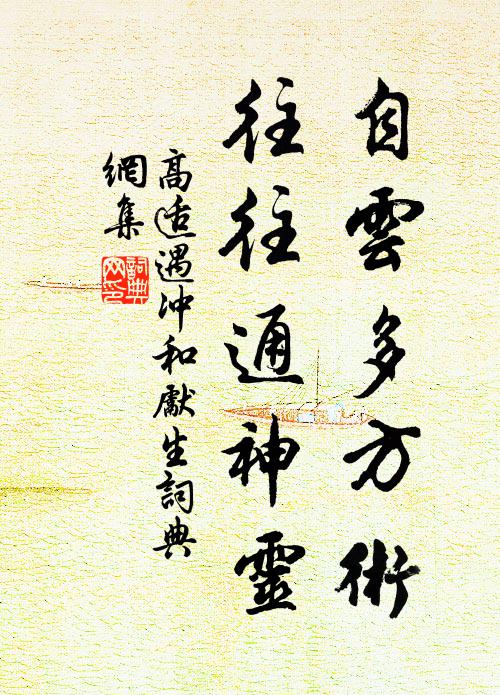 自雲多方術
往往通神靈
高适遇沖和獻生詞典
網集
詞典網印